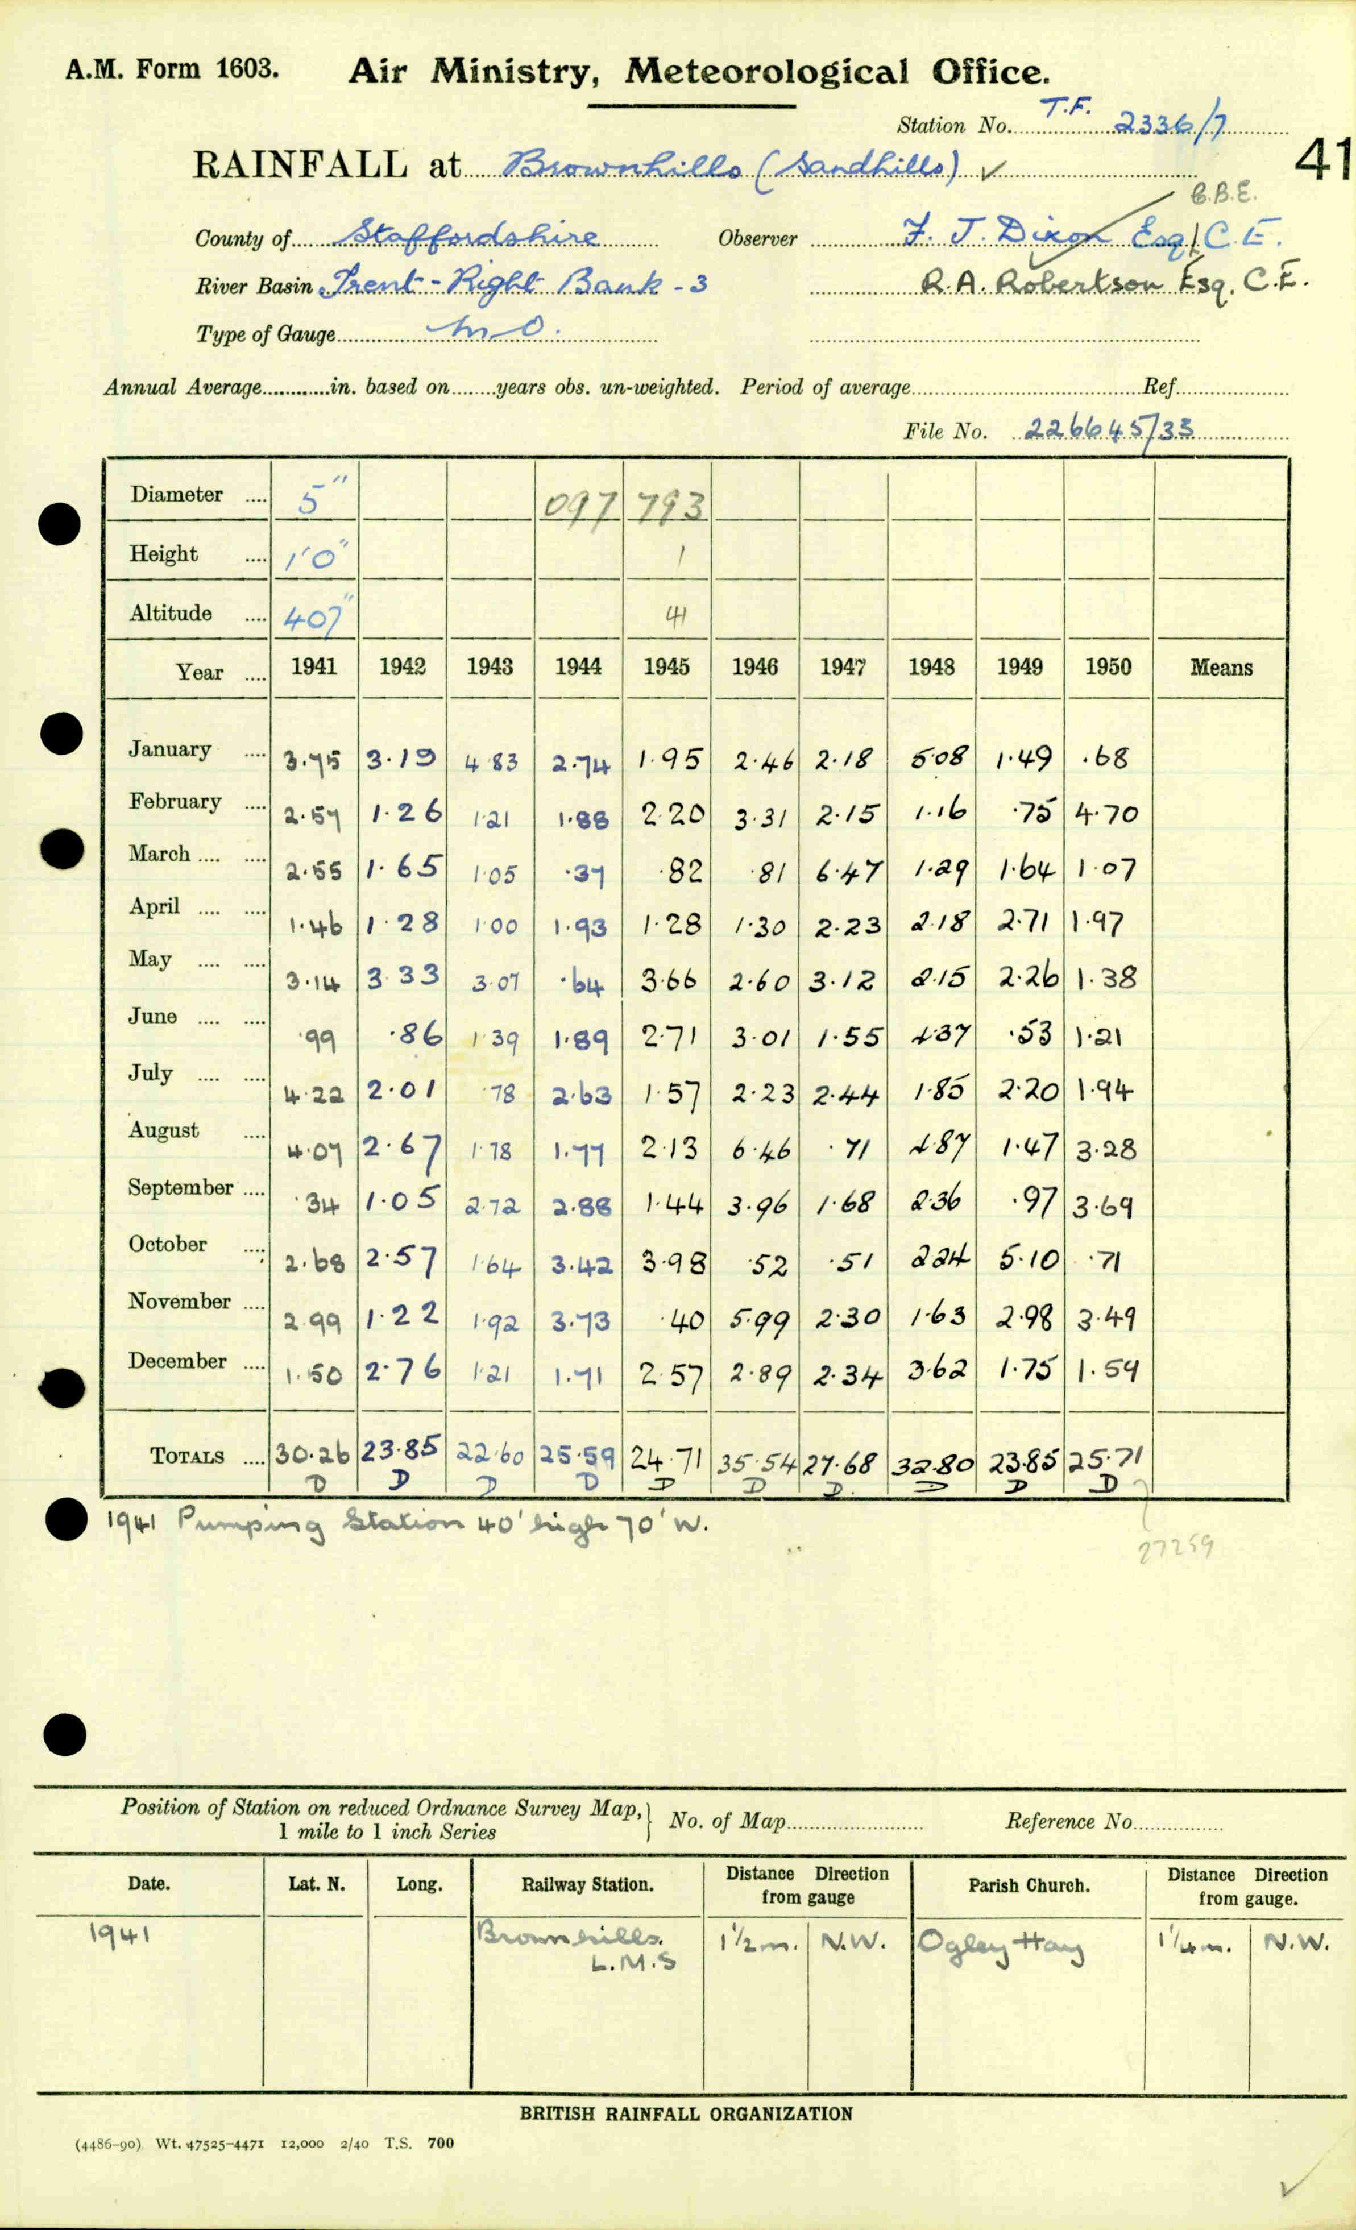 A.M. Form 1603. Air Ministry, Meteorological Office.
Station No. T.F. 2336/7
RAINFALL at Brownhills (Sandhills) ✓
41
C.B.E.
County of Staffordshire Observer F. J. Dixon Esq C.E.
River Basin Trent - Right Bank - 3 R.A. Robertson Esq. C.E.
Type of Gauge M.O.
Annual Average in. based on years obs. un-weighted. Period of average Ref.
File No. 226645/33
Diameter 5" 097 793
Height 1'0" 1
Altitude 407" 41
Year 1941 1942 1943 1944 1945 1946 1947 1948 1949 1950 Means
January 3.75 3.19 4.83 2.74 1.95 2.46 2.18 5.08 1.49 .68
February 2.57 1.26 1.21 1.88 2.20 3.31 2.15 1.16 .75 4.70
March 2.55 1.65 1.05 .37 .82 .81 6.47 1.29 1.64 1.07
April 1.46 1.28 1.00 1.93 1.28 1.30 2.23 2.18 2.71 1.97
May 3.14 3.33 3.07 .64 3.66 2.60 3.12 2.15 2.26 1.38
June .99 .86 1.39 1.89 2.71 3.01 1.55 4.37 .53 1.21
July 4.22 2.01 .78 2.63 1.57 2.23 2.44 1.85 2.20 1.94
August 4.07 2.67 1.78 1.77 2.13 6.46 .71 4.87 1.47 3.28
September .34 1.05 2.72 2.88 1.44 3.96 1.68 2.36 .97 3.69
October 2.68 2.57 1.64 3.42 3.98 .52 .51 2.24 5.10 .71
November 2.99 1.22 1.92 3.73 .40 5.99 2.30 1.63 2.98 3.49
December 1.50 2.76 1.21 1.71 2.57 2.89 2.34 3.62 1.75 1.59
TOTALS 30.26 23.85 22.60 25.59 24.71 35.54 27.68 32.80 23.85 25.71
D D D D D D D D D D
1941 Pumping Station 40' high 70' W.
27259
Position of Station on reduced Ordnance Survey Map, No. of Map Reference No
1 mile to 1 inch Series
Date. Lat. N. Long. Railway Station. Distance Direction from gauge Parish Church. Distance Direction from gauge.
1941 Brownhills L.M.S 1½m. N.W. Ogley Hay 1¼m. N.W.
BRITISH RAINFALL ORGANIZATION
(4486-90) Wt. 47525-4471 12,000 2/40 T.S. 700
✓